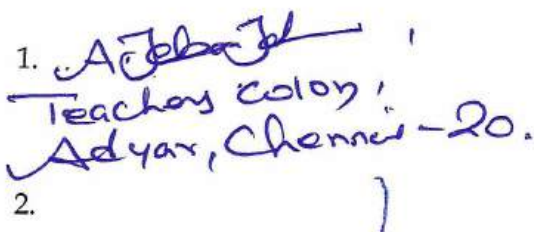 1.
Teachers colony,
Adyar, Chennai-20.
2.